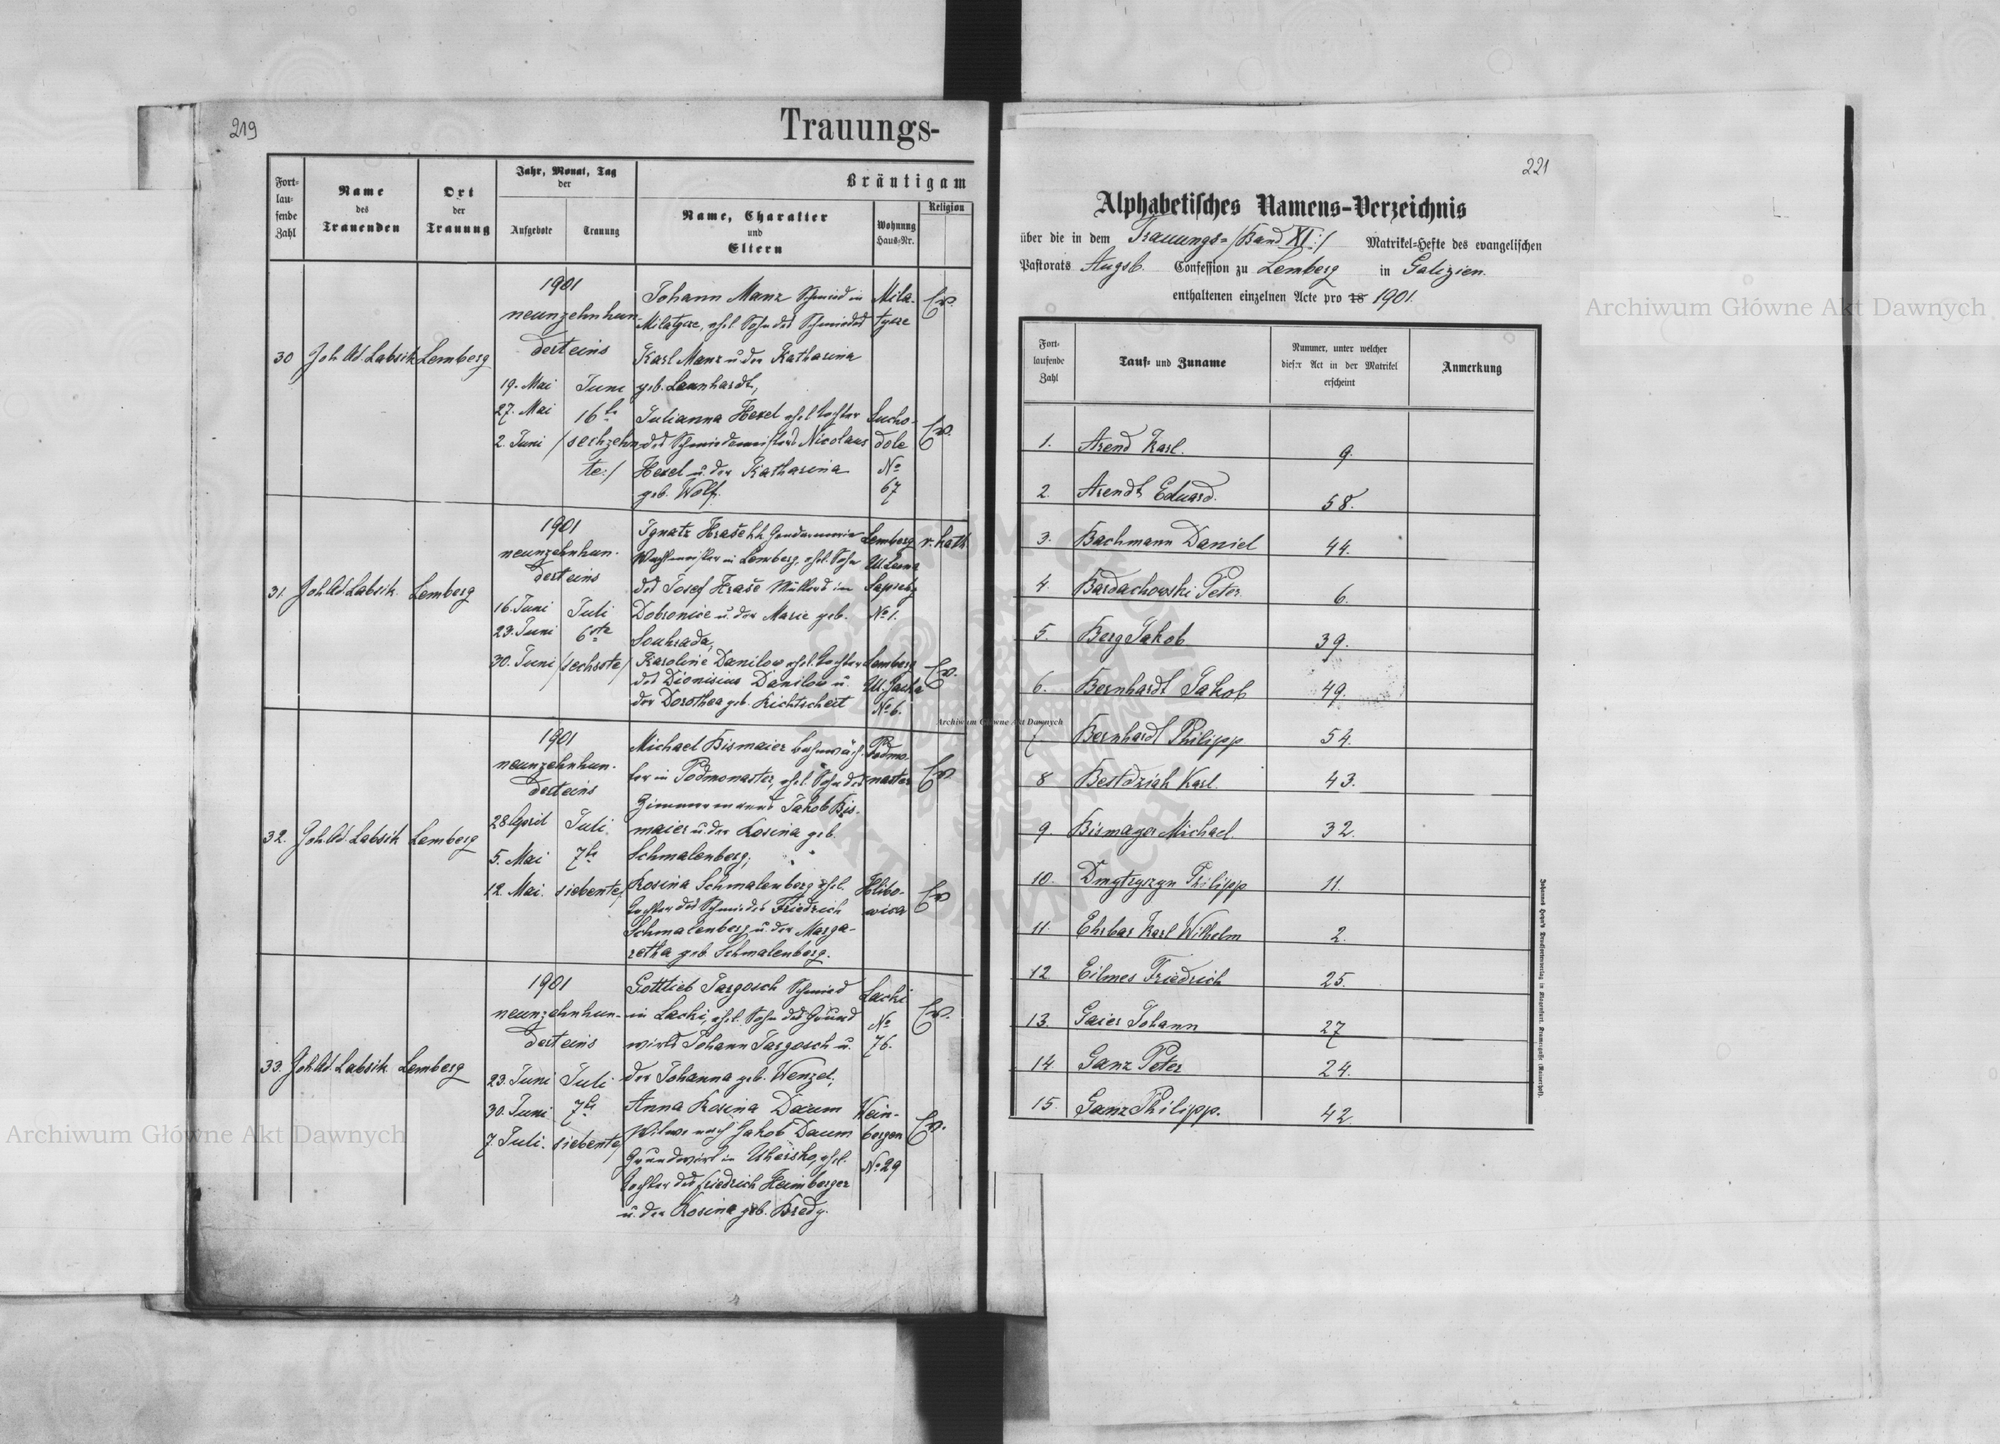 219
Trauungs-
Fort-
lau-
fende
Zahl
Name
des
Trauenden
Ort
der
Trauung
Jahr, Monat, Tag
der
Aufgebote
Trauung
Bräutigam
Name, Charakter
und
Eltern
Wohnung
Haus-Nr.
Religion
30
Joh. Ad. Labsik
Lemberg
1901
neunzehnhun-
dert eins
19. Mai
27. Mai
2. Juni
Juni
16te
/sechzehn-
te:/
Johann Manz Schmied in
Milatyze, ehel. Sohn des Schmiedes
Karl Manz u. der Katharina
geb. Leonhardt,
Mila-
tyze
Ev.
Julianna Hexel ehel. Tochter
des Schmiedemeisters Nicolaus
Hexel u. der Katharina
geb. Wolf.
Sucho-
dole
No
67
Ev.
31.
Joh. Ad. Labsik
Lemberg
1901
neunzehnhun-
dert eins
16. Juni
23. Juni
30. Juni
Juli
6ste
/sechste/
Ignatz Hraše k.k. Gendarmerie
Wachtmeister in Lemberg, ehel. Sohn
des Josef Hraše Müllers in
Dobronice u. der Marie geb.
Soukrada,
Lemberg
Ul. Leona
Sapiehy
No 1.
r. kath
Karoline Danilow ehel. Tochter
des Dionisius Danilow u.
der Dorothea geb. Richtscheit
Lemberg
Ul.
No 6.
Ev.
32.
Joh. Ad. Labsik
Lemberg
1901
neunzehnhun-
dert eins
28 April
5. Mai
12. Mai
Juli
7te
siebente/
Michael Bismaier Bahnwäch-
ter in Podmonaster, ehel. Sohn des
Zimmermanns Jakob Bis-
maier u. der Rosina geb.
Schmalenberg;
Podmo-
naster
Ev
Rosina Schmalenberg ehel.
Tochter des Schmiedes Friedrich
Schmalenberg u. der Marga-
retha geb. Schmalenberg.
Hlibo-
wice
Ev
33.
Joh. Ad. Labsik
Lemberg
1901
neunzehnhun-
dert eins
23. Juni
30. Juni
7. Juli.
Juli
7te
siebente/
Gottlieb Targosch Schmied
in Lacki, ehel. Sohn des Grund
wirts Johann Targosch u.
der Johanna geb. Wenzel;
Lacki
No
76.
Ev.
Anna Rosina Daum
Witwe nach Jakob Daum
Grundwirt in Uhersko, ehel.
Tochter des Friedrich Heimberger
u. der Rosina geb. Bredy.
Wein-
bergen
No 29
Ev.
221
Alphabetisches Namens-Verzeichnis
über die in dem Trauungs- /Band XI:/ Matrikel-Hefte des evangelischen
Pastorats Augsb. Confession zu Lemberg in Galizien.
enthaltenen einzelnen Acte pro 18 1901.
Fort-
laufende
Zahl
Tauf- und Zuname
Nummer, unter welcher
dieser Act in der Matrikel
erscheint
Anmerkung
1. Arend Karl. 9.
2. Arendt Eduard. 58.
3. Bachmann Daniel 44.
4. Bardachowski Peter 6.
5. Berg Jakob 39.
6. Bernhardt Jakob 49.
7 Bernhardt Philipp 54.
8 Bestdziah Karl. 43.
9. Bismayer Michael. 32.
10. Dmytryzyn Philipp 11.
11. Ehrbar Karl Wilhelm 2.
12 Eilmes Friedrich 25.
13. Gaier Johann 27
14 Ganz Peter 24.
15. Ganz Philipp. 42.
Archiwum Główne Akt Dawnych
Archiwum Główne Akt Dawnych
Archiwum Główne Akt Dawnych